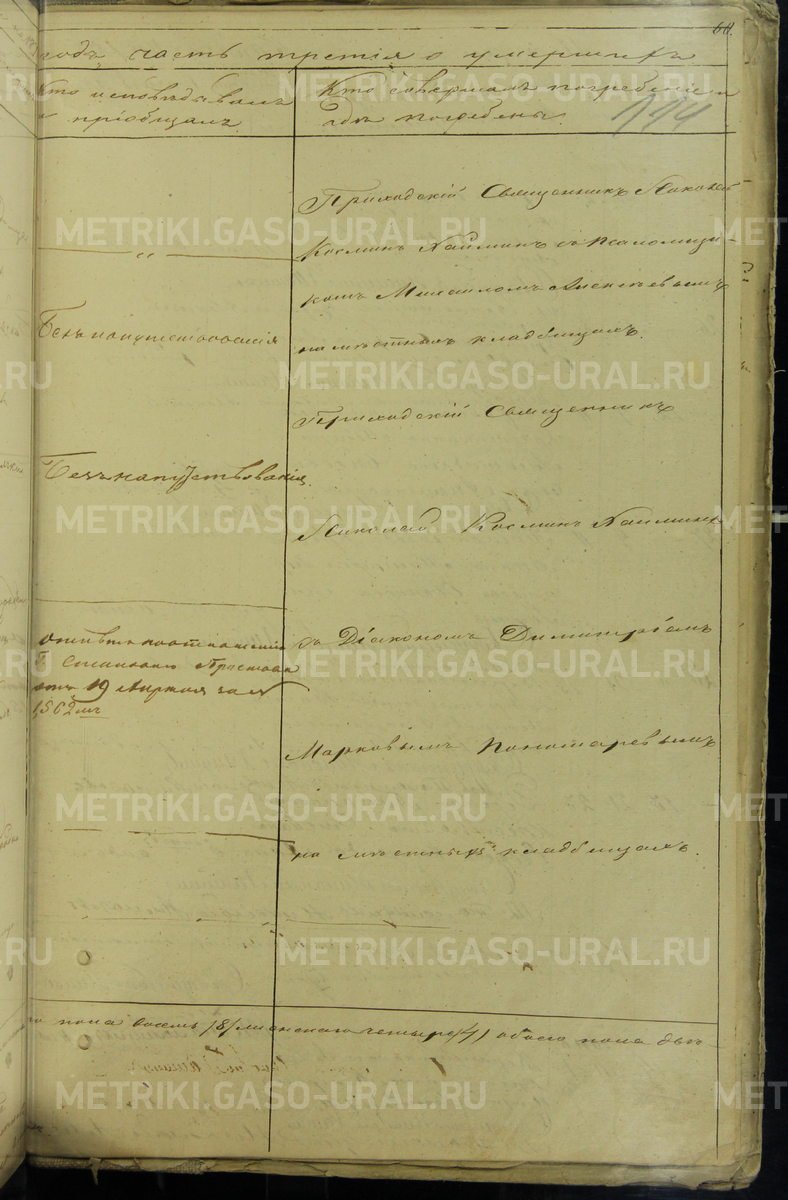 годъ, часть третія о умершихъ
Кто исповѣдывалъ
и пріобщалъ.
Кто совершалъ погребеніе и
гдѣ погребены.
Приходскій Священникъ Николай
Космин Наймин съ Псаломщи-
комъ Михаиломъ Алексѣевымъ
на мѣстныхъ кладбищахъ.
Безъ напутствованія
Приходскій Священникъ
Безъ напутствованія.
Николай Космин Наймин
отпѣтъ по отношенію
Становаго Пристава
отъ 19 Апреля за №
1562мъ
съ Діакономъ Димитріемъ
Марковымъ Пономаревымъ
на мѣстныхъ кладбищахъ.
пола восемь /8/ женскаго четыре /4/ обоего пола двѣ-
METRIKI.GASO-URAL.RU